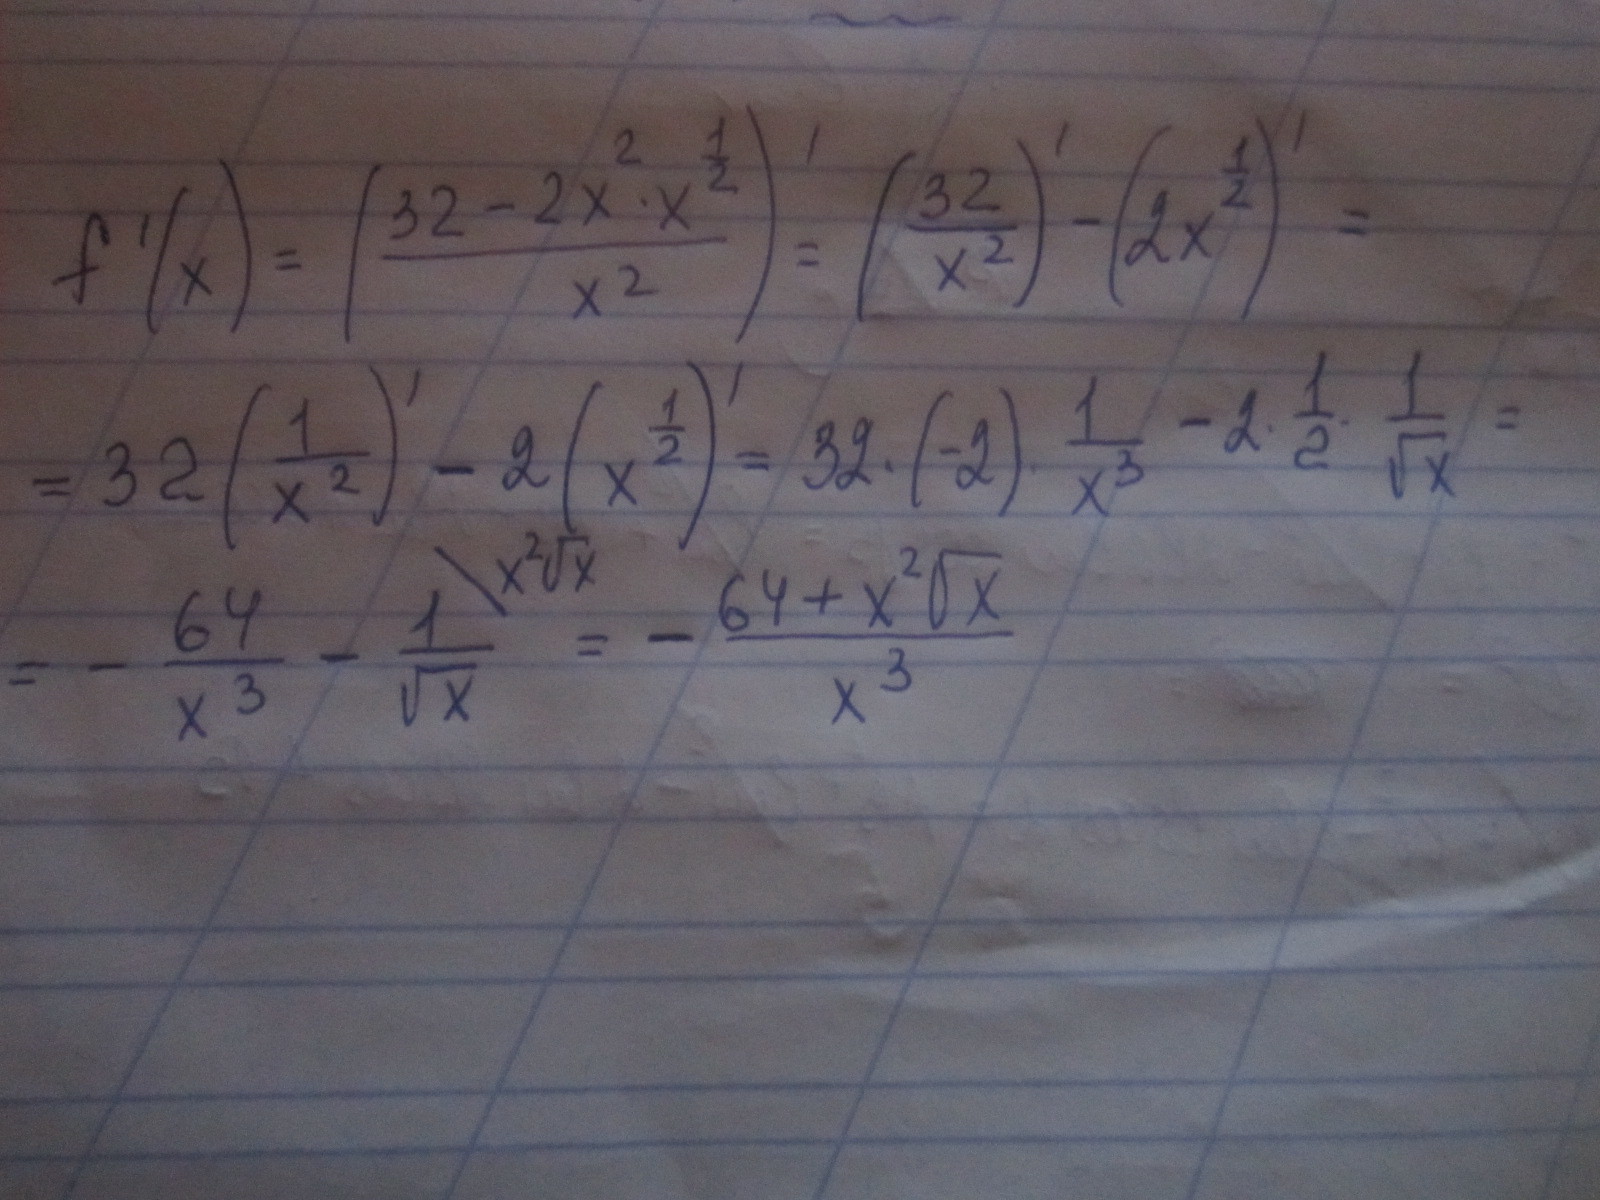 f'(x) = ((32 - 2x² · x^(1/2))/x²)' = (32/x²)' - (2x^(1/2))' =
= 32(1/x²)' - 2(x^(1/2))' = 32 · (-2) · 1/x³ - 2 · 1/2 · 1/√x =
= - 64/x³ - 1/√x \ x²√x = - (64 + x²√x)/x³